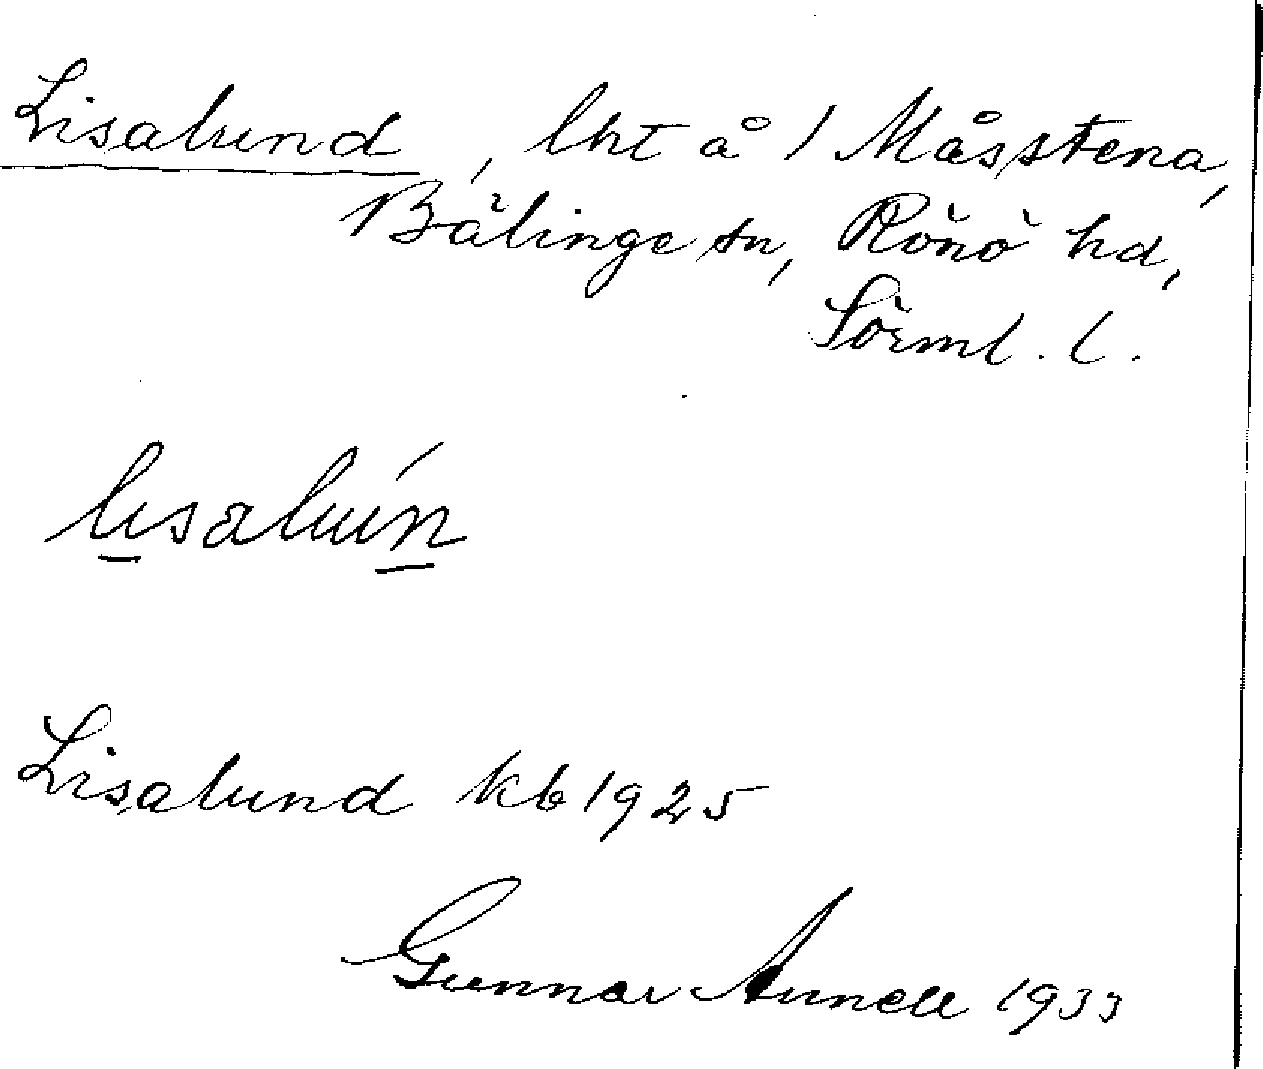 Lisalund, lht å 1 Måsstena,
Bälinge sn, Rönö hd,
Sörml. l.
lisalún
Lisalund kb 1925
Gunnar 1933